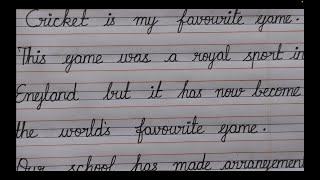 Cricket is my favourite game.
This game was a royal sport in
England but it has now become
the world's favourite game.
Our school has made arrangemen